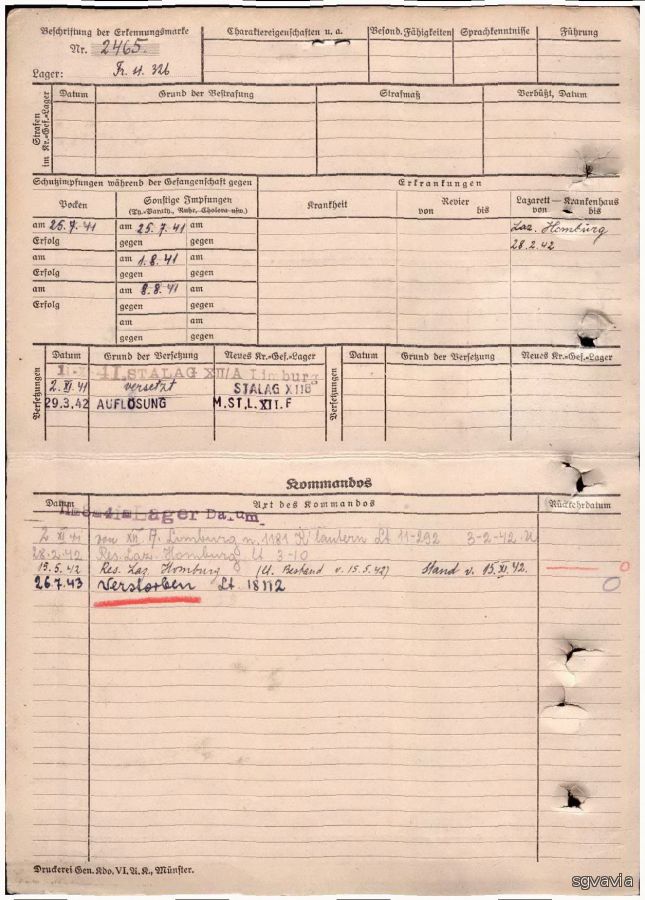 Beschriftung der Erkennungsmarke
Nr. 2465.
Lager: Fr. St. 326
Charaktereigenschaften u. a.
Besond. Fähigkeiten
Sprachkenntnisse
Führung
Strafen im Kr.-Gef.-Lager
Datum
Grund der Bestrafung
Strafmaß
Verbüßt, Datum
Schutzimpfungen während der Gefangenschaft gegen
Erkrankungen
Pocken
Sonstige Impfungen
(Ty.-Paraty., Ruhr, Cholera usw.)
Krankheit
Revier
von bis
Lazarett — Krankenhaus
von bis
am 25.7.41 am 25.7.41 am
Laz. Homburg
Erfolg gegen gegen
28.2.42
am am 1.8.41 am
Erfolg gegen gegen
am am 8.8.41 am
Erfolg gegen gegen
am am
gegen gegen
Versetzungen
Datum
Grund der Versetzung
Neues Kr.-Gef.-Lager
Versetzungen
Datum
Grund der Versetzung
Neues Kr.-Gef.-Lager
STALAG XII/A Limburg
2. XI. 41 versetzt STALAG XII
29.3.42 AUFLÖSUNG M.ST.L.XII.F
Kommandos
Datum
Art des Kommandos
Rückkehrdatum
Lager Datum
2 XI 41 von XII. A. Limburg n. 1181 K'lautern Lt 11-292 3-2-42.
28.2.42 Res. Laz. Homburg Lt 3-10
15.5.42 Res. Laz. Homburg (Lt. Bestand v. 15.5.42) Stand v. 15.XI.42.
26.7.43 Verstorben Lt. 18112
Druckerei Gen. Kdo. VI. A. K., Münster.
sgvavia